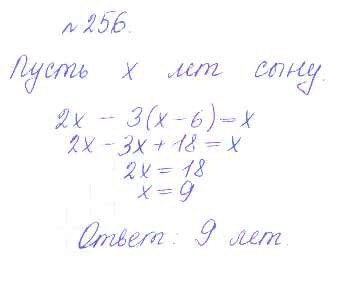 №256.
Пусть х лет сыну.
2х - 3(х - 6) = х
2х - 3х + 18 = х
2х = 18
х = 9
Ответ: 9 лет.